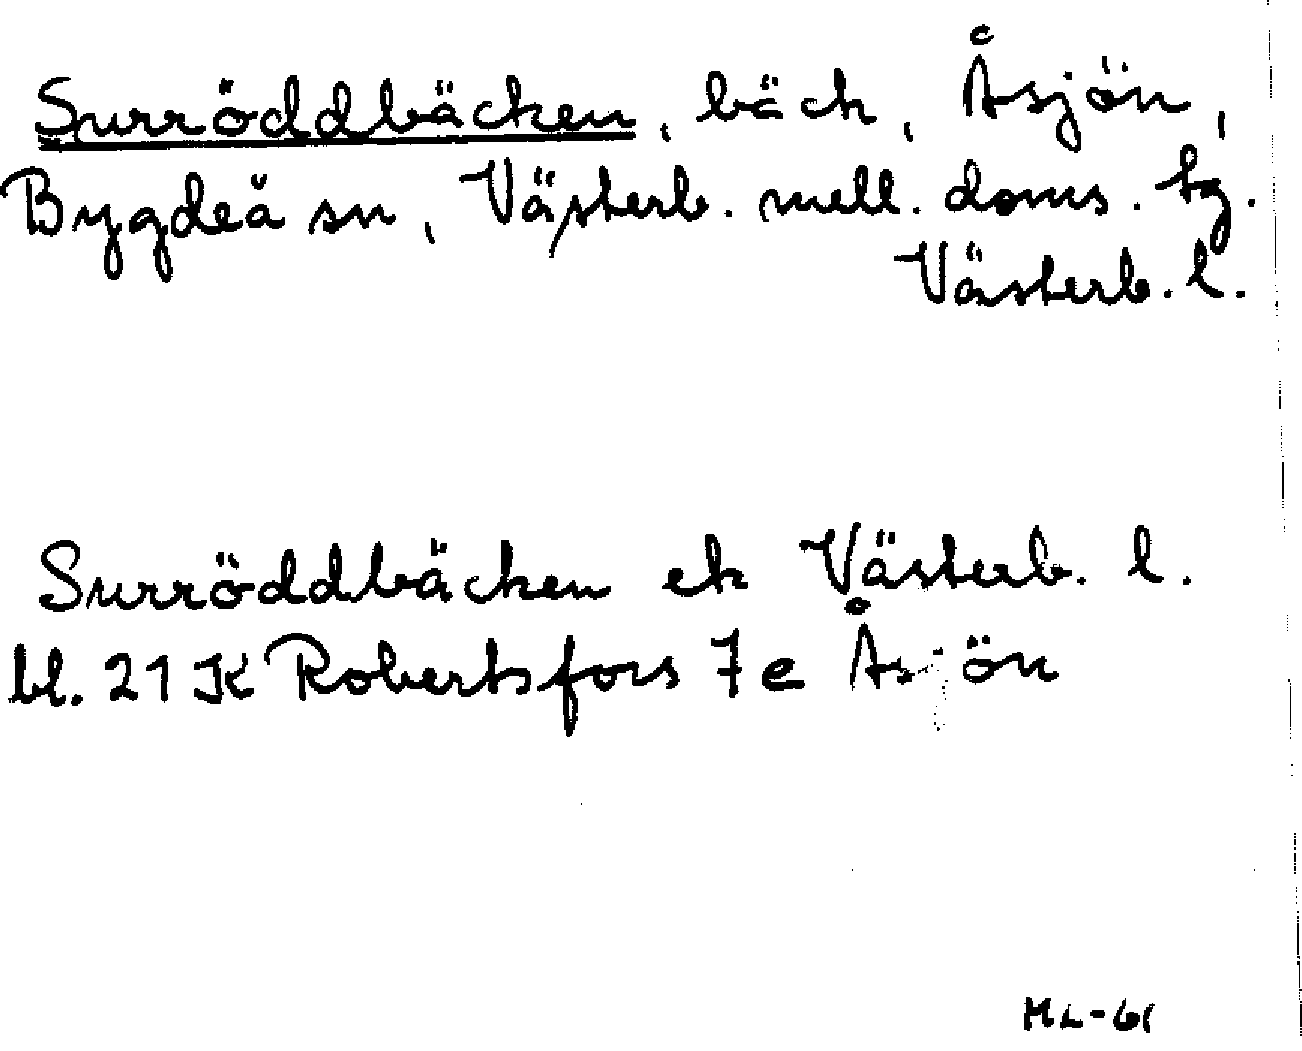 Surröddbäcken, bäck, Åsjön,
Bygdeå sn, Västerb. mell. doms. tg.
Västerb. l.
Surröddbäcken ek Västerb. l.
bl. 21 K Robertsfors 7 e Åsjön
ML-61